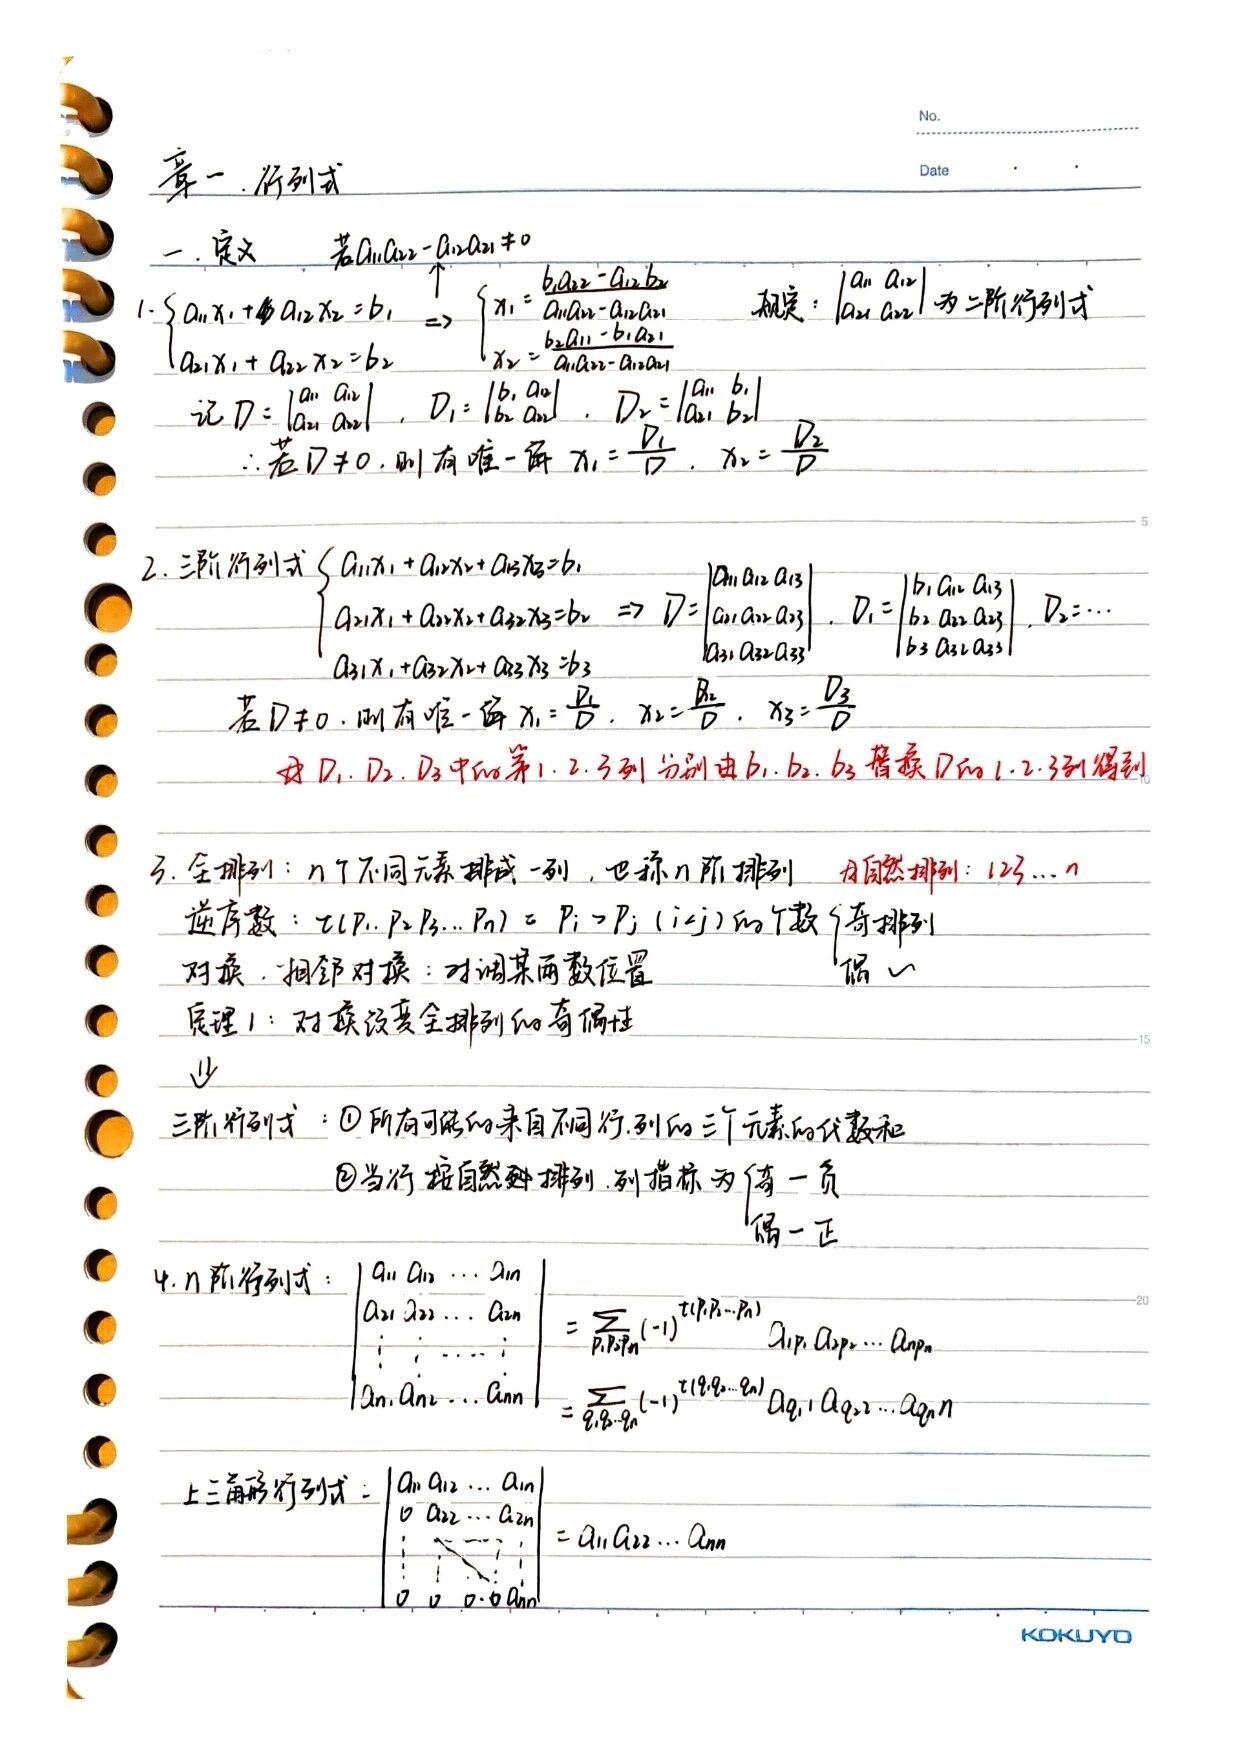 No.
Date
章一. 行列式
一. 定义 若a₁₁a₂₂-a₁₂a₂₁≠0
↑
1. {a₁₁x₁+a₁₂x₂=b₁ ⇒ {x₁=(b₁a₂₂-a₁₂b₂)/(a₁₁a₂₂-a₁₂a₂₁) 规定: |a₁₁ a₁₂; a₂₁ a₂₂| 为二阶行列式
a₂₁x₁+a₂₂x₂=b₂ x₂=(b₂a₁₁-b₁a₂₁)/(a₁₁a₂₂-a₁₂a₂₁)
记D=|a₁₁ a₁₂; a₂₁ a₂₂|, D₁=|b₁ a₁₂; b₂ a₂₂|, D₂=|a₁₁ b₁; a₂₁ b₂|
∴若D≠0,则有唯一解 x₁=D₁/D, x₂=D₂/D
5
2. 三阶行列式 {a₁₁x₁+a₁₂x₂+a₁₃x₃=b₁
a₂₁x₁+a₂₂x₂+a₃₂x₃=b₂ ⇒ D=|a₁₁ a₁₂ a₁₃; a₂₁ a₂₂ a₂₃; a₃₁ a₃₂ a₃₃|, D₁=|b₁ a₁₂ a₁₃; b₂ a₂₂ a₂₃; b₃ a₃₂ a₃₃|, D₂=…
a₃₁x₁+a₃₂x₂+a₃₃x₃=b₃
若D≠0,则有唯一解 x₁=D₁/D, x₂=D₂/D, x₃=D₃/D
D₁.D₂.D₃中的第1.2.3列分别由b₁.b₂.b₃替换D的1.2.3列得到
10
3. 全排列: n个不同元素排成一列,也称n阶排列 自然排列: 123…n
逆序数: t(p₁.p₂p₃…pₙ)= pᵢ>pⱼ (i<j)的个数 {奇排列
偶 〜
对换.相邻对换: 对调某两数位置
定理1: 对换改变全排列的奇偶性
15
⇓
三阶行列式: ①所有可能的来自不同行.列的三个元素的代数和
②当行按自然排列.列指标为 {奇—负
偶—正
4. n阶行列式: |a₁₁ a₁₂ … a₁ₙ|
20
|a₂₁ a₂₂ … a₂ₙ| = ∑p₁p₂pₙ (-1)^t(p₁p₂…pₙ) a₁p₁ a₂p₂ … aₙpₙ
|⋮ ⋮ …. ⋮|
|aₙ₁ aₙ₂ … aₙₙ| = ∑q₁q₂…qₙ (-1)^t(q₁q₂…qₙ) aq₁1 aq₂2 … aqₙn
上三角形行列式: |a₁₁ a₁₂ … a₁ₙ|
|0 a₂₂ … a₂ₙ| = a₁₁a₂₂…aₙₙ
|⋮ ⋮ ⋮ ⋮|
|0 0 0·0 aₙₙ|
KOKUYO